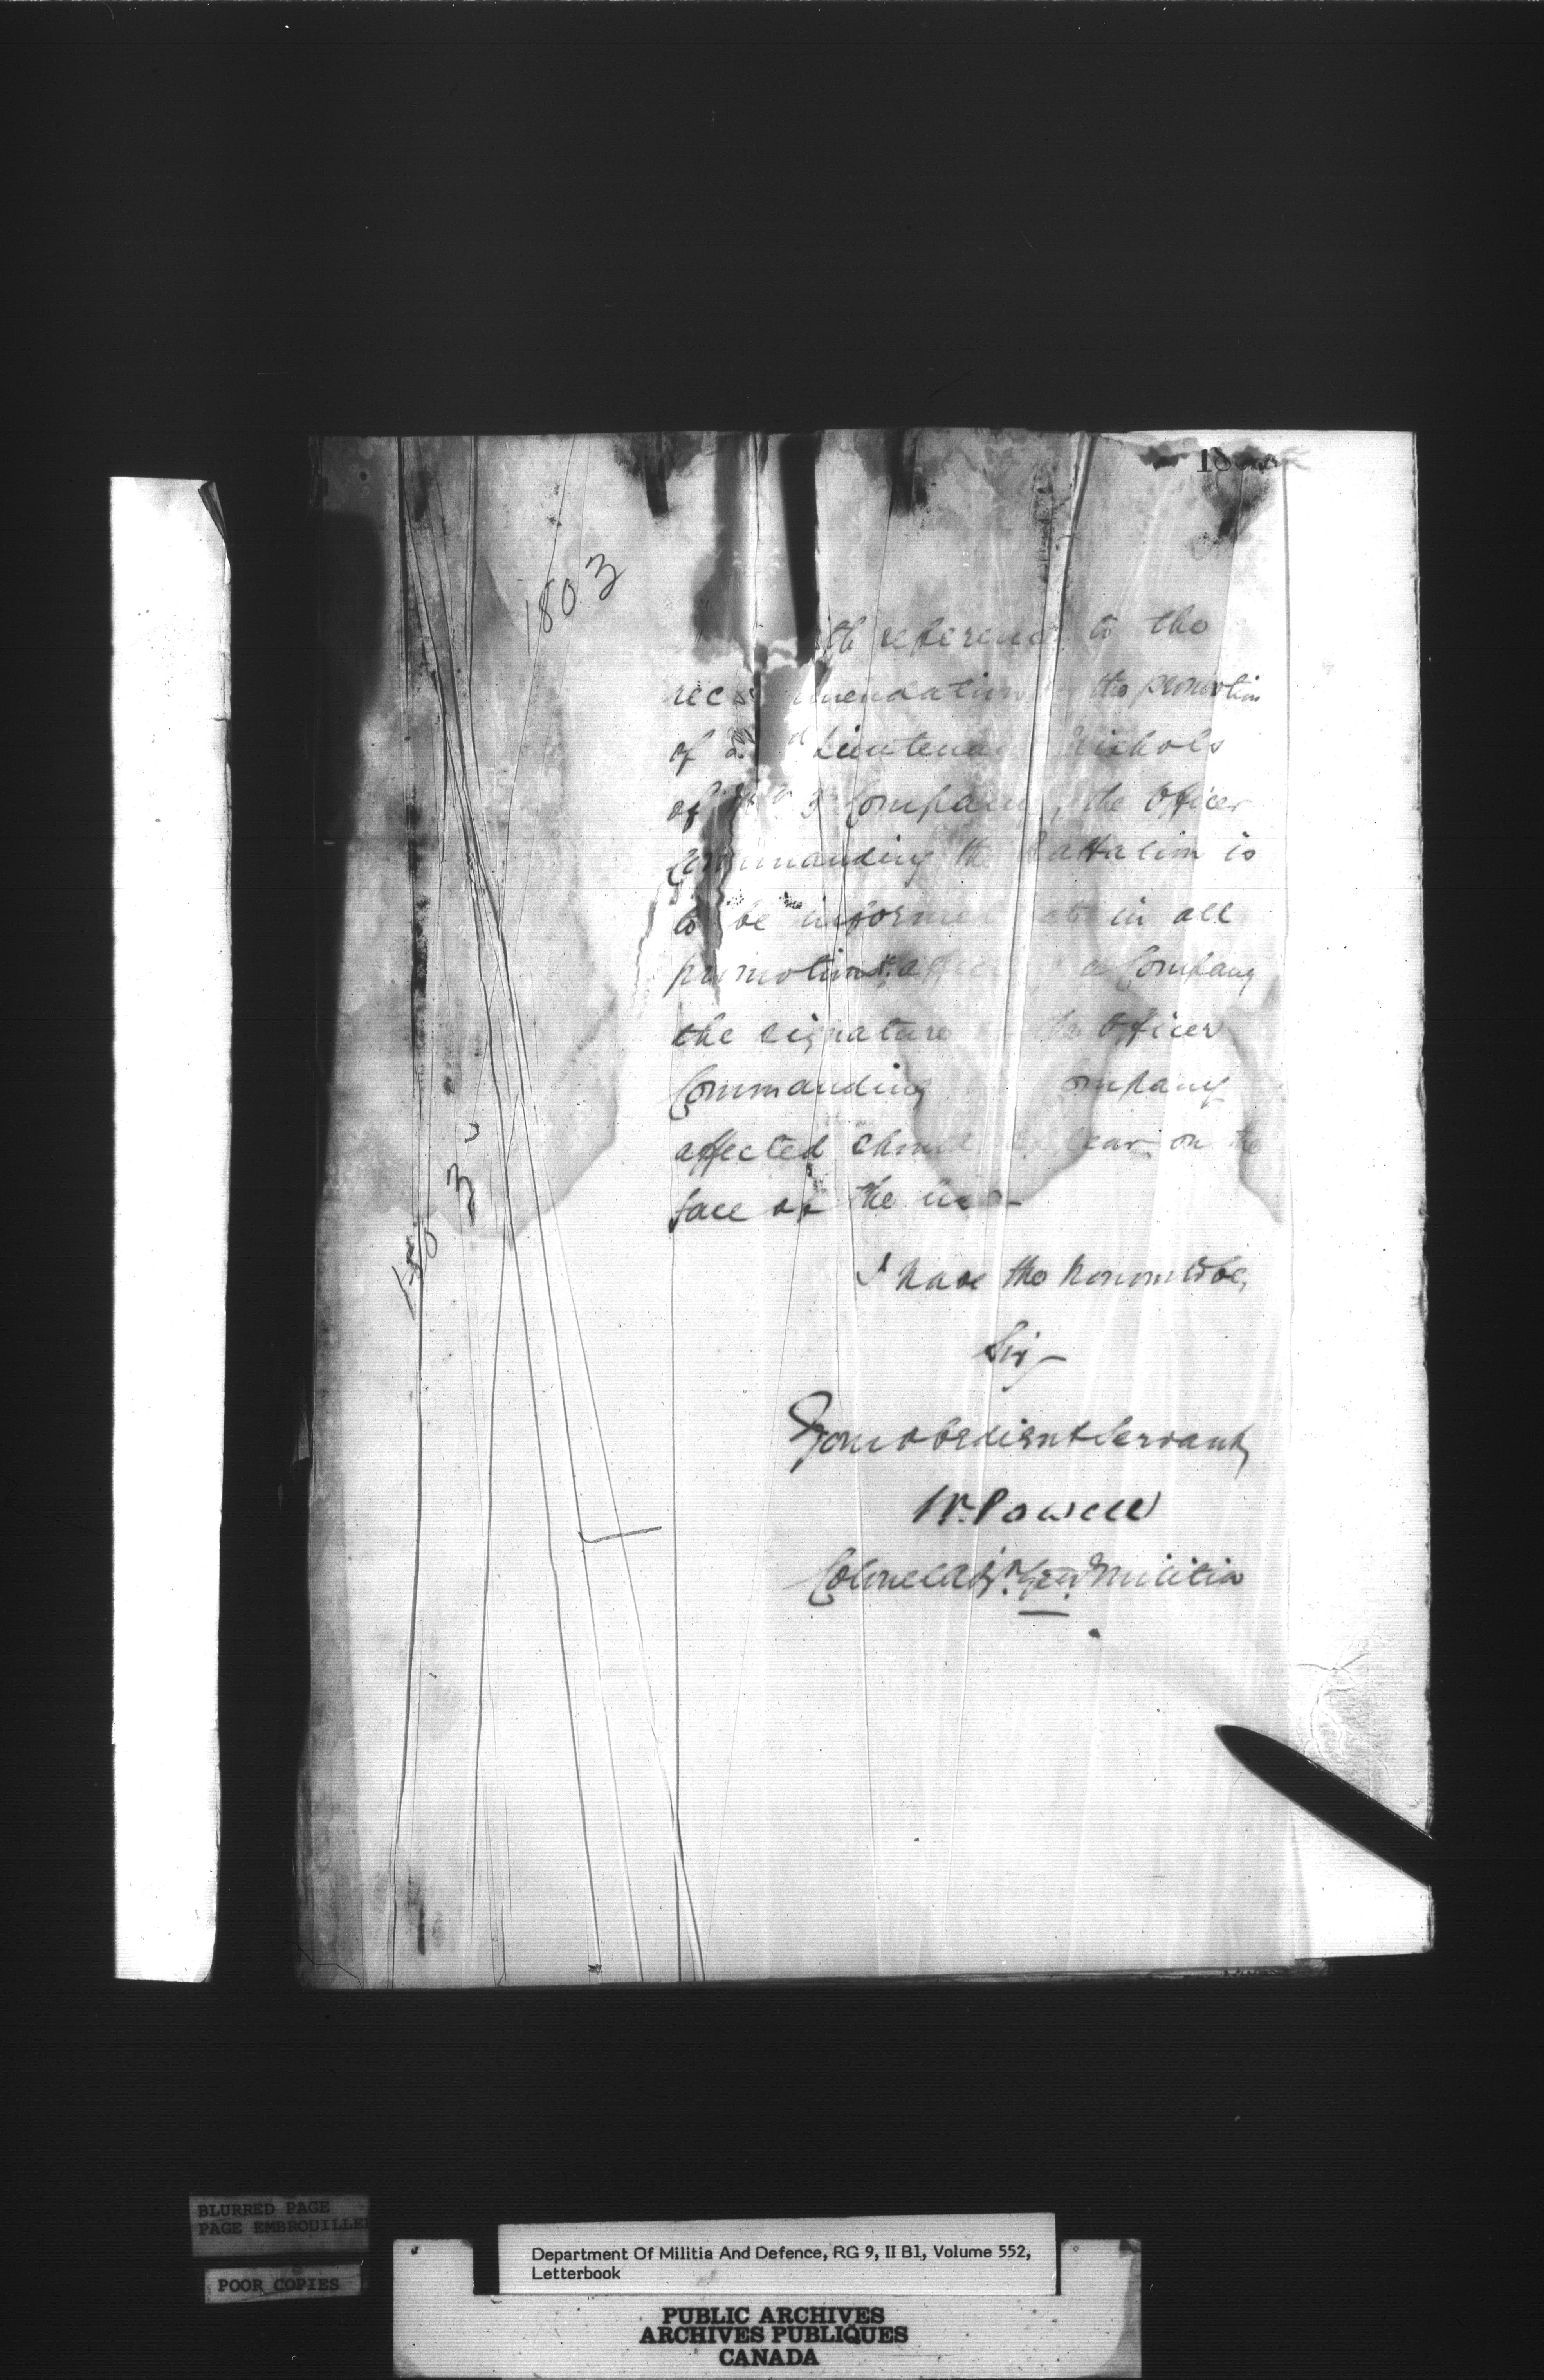 1803
1803
th reference to the
recommendation the promotion
of 2nd Lieutenant Nichols
of No 3 Company, the Officer
Commanding the Battalion is
to be informed in all
promotions a Company
the signature the Officer
Commanding Company
affected should appear on the
face of the
I have the honour to be,
Sir
Your obedient Servant,
W. Powell
Colonel Adjt. Genl Militia
BLURRED PAGE
PAGE EMBROUILLE
POOR COPIES
Department Of Militia And Defence, RG 9, II B1, Volume 552,
Letterbook
PUBLIC ARCHIVES
ARCHIVES PUBLIQUES
CANADA